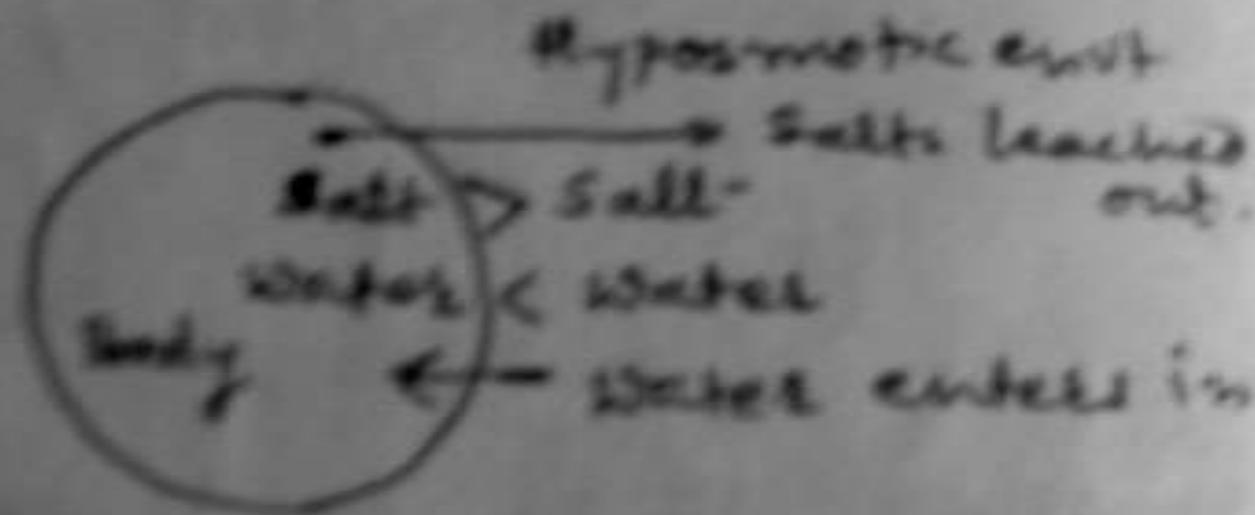 Hyposmotic envt
Salts leached
out.
Salt > Salt
Water < Water
Body
Water enters in